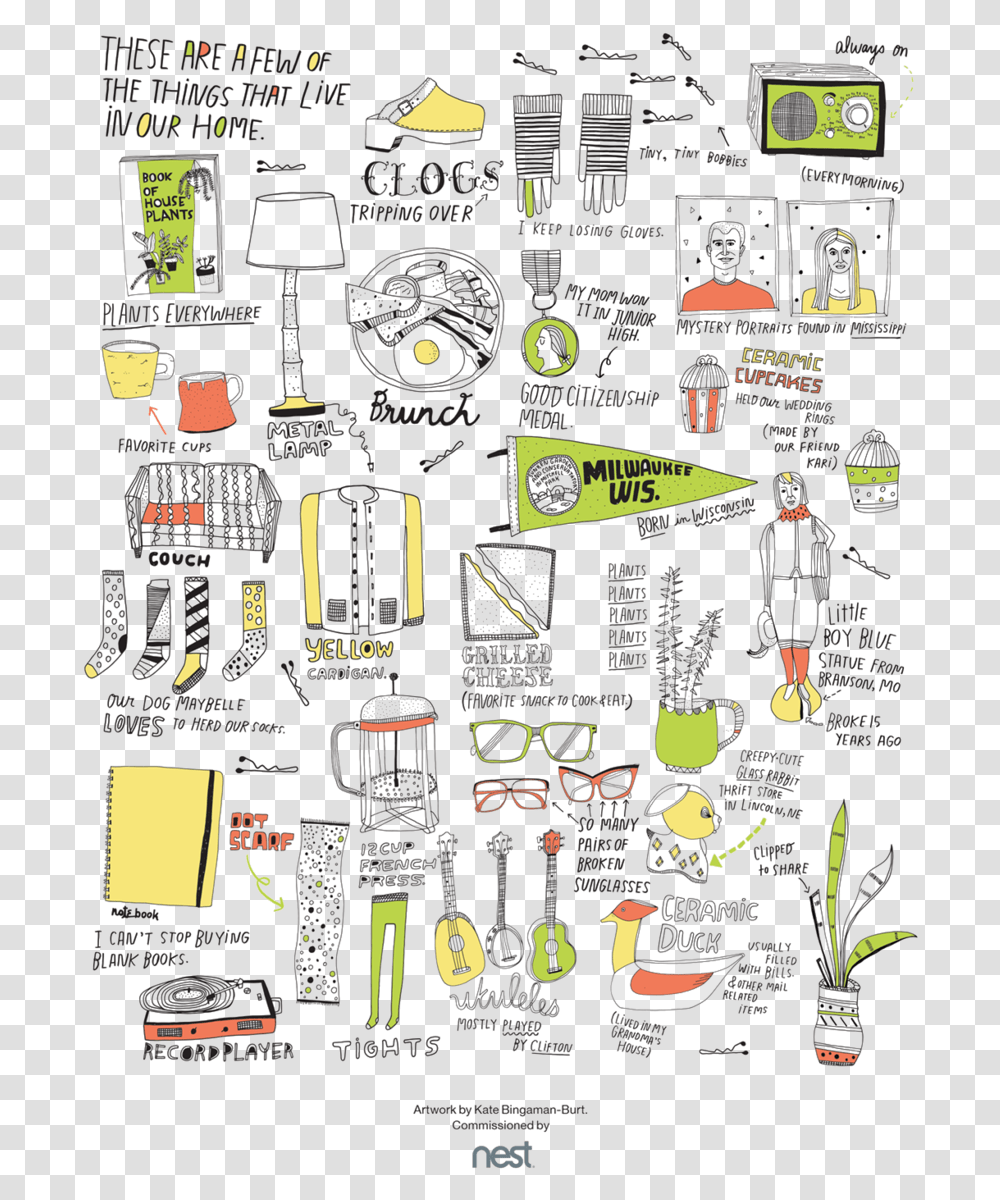 THESE ARE A FEW OF
THE THINGS THAT LIVE
IN OUR HOME.
BOOK
OF
HOUSE
PLANTS
PLANTS EVERYWHERE
CLOGS
TRIPPING OVER
I KEEP LOSING GLOVES.
TINY, TINY BOBBIES
always on
(EVERY MORNING)
MYSTERY PORTRAITS FOUND IN MISSISSIPPI
FAVORITE CUPS
METAL
LAMP
Brunch
MY MOM WON
IT IN JUNIOR
HIGH.
GOOD CITIZENSHIP
MEDAL.
CERAMIC
CUPCAKES
HELD OUR WEDDING
RINGS
(MADE BY
OUR FRIEND
KARI)
COUCH
MILWAUKEE
WIS.
BORN in WISCONSIN
YELLOW
CARDIGAN.
GRILLED
CHEESE
(FAVORITE SNACK TO COOK & EAT.)
PLANTS
PLANTS
PLANTS
PLANTS
PLANTS
LITTLE
BOY BLUE
STATUE FROM
BRANSON, MO
BROKE 15
YEARS AGO
OUR DOG MAYBELLE
LOVES TO HERD OUR SOCKS.
CREEPY-CUTE
GLASS RABBIT
THRIFT STORE
IN LINCOLN, NE
SO MANY
PAIRS OF
BROKEN
SUNGLASSES
CLIPPED
to SHARE
DOT
SCARF
12 CUP
FRENCH
PRESS
notebook
I CAN'T STOP BUYING
BLANK BOOKS.
CERAMIC
DUCK
USUALLY
FILLED
WITH BILLS.
& OTHER MAIL
RELATED
ITEMS
(LIVED IN MY
GRANDMA'S
HOUSE)
ukuleles
MOSTLY PLAYED
BY CLIFTON
RECORD PLAYER
TIGHTS
Artwork by Kate Bingaman-Burt.
Commissioned by
nest.